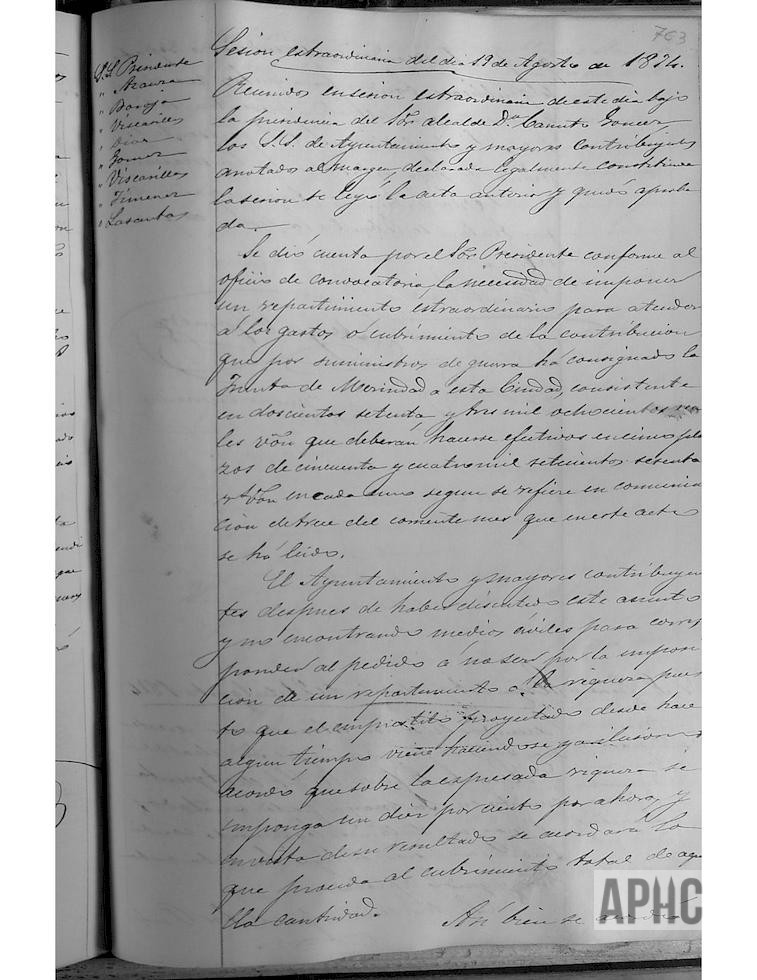 763
Sesion estraordinaria del dia 19 de Agosto de 1874.
S.S. Presidente
" Azcura
" Borja
" Viscasillas
" Gomez
" Viscasillas
" Jimenez
" Lasantas
Reunidos en sesion estraordinaria de este dia bajo
la presidencia del Sor. Alcalde Dn. Canuto Gomez
los S.S. de Ayuntamiento y mayores contribuyentes
anotados al margen, declarada legalmente constituida
la sesion se leyó la acta anterior y quedó aproba
da.
Se dió cuenta por el Sor. Presidente conforme al
oficio de convocatoria, la necesidad de imponer
un repartimiento estraordinario para atender
á los gastos ó cubrimiento de la contribucion
que por suministros de guerra há consignado la
Junta de Merindad a esta Ciudad, consistente
en doscientos setenta y tres mil ochocientos rea
les von. que deberán hacerse efectivos en cinco pla
zos de cincuenta y cuatro mil setecientos sesenta
rs. von. en cada uno segun se refiere en comunica
cion de trece del corriente mes que en este acto
se há leido.
El Ayuntamiento y mayores contribuyen
tes despues de haber discutido este asunto
y no encontrando medios civiles para corres
ponder al pedido á no ser por la imposi
cion de un repartimiento á la riqueza, pues
to que el emprestito proyectado desde hace
algun tiempo viene haciendose y
acordó que sobre la espresada riqueza se
imponga un diez por ciento por ahora, y
en vista de su resultado se acordará lo
que proceda al cubrimiento total de aque
lla cantidad. Asi bien se acordó
APHC